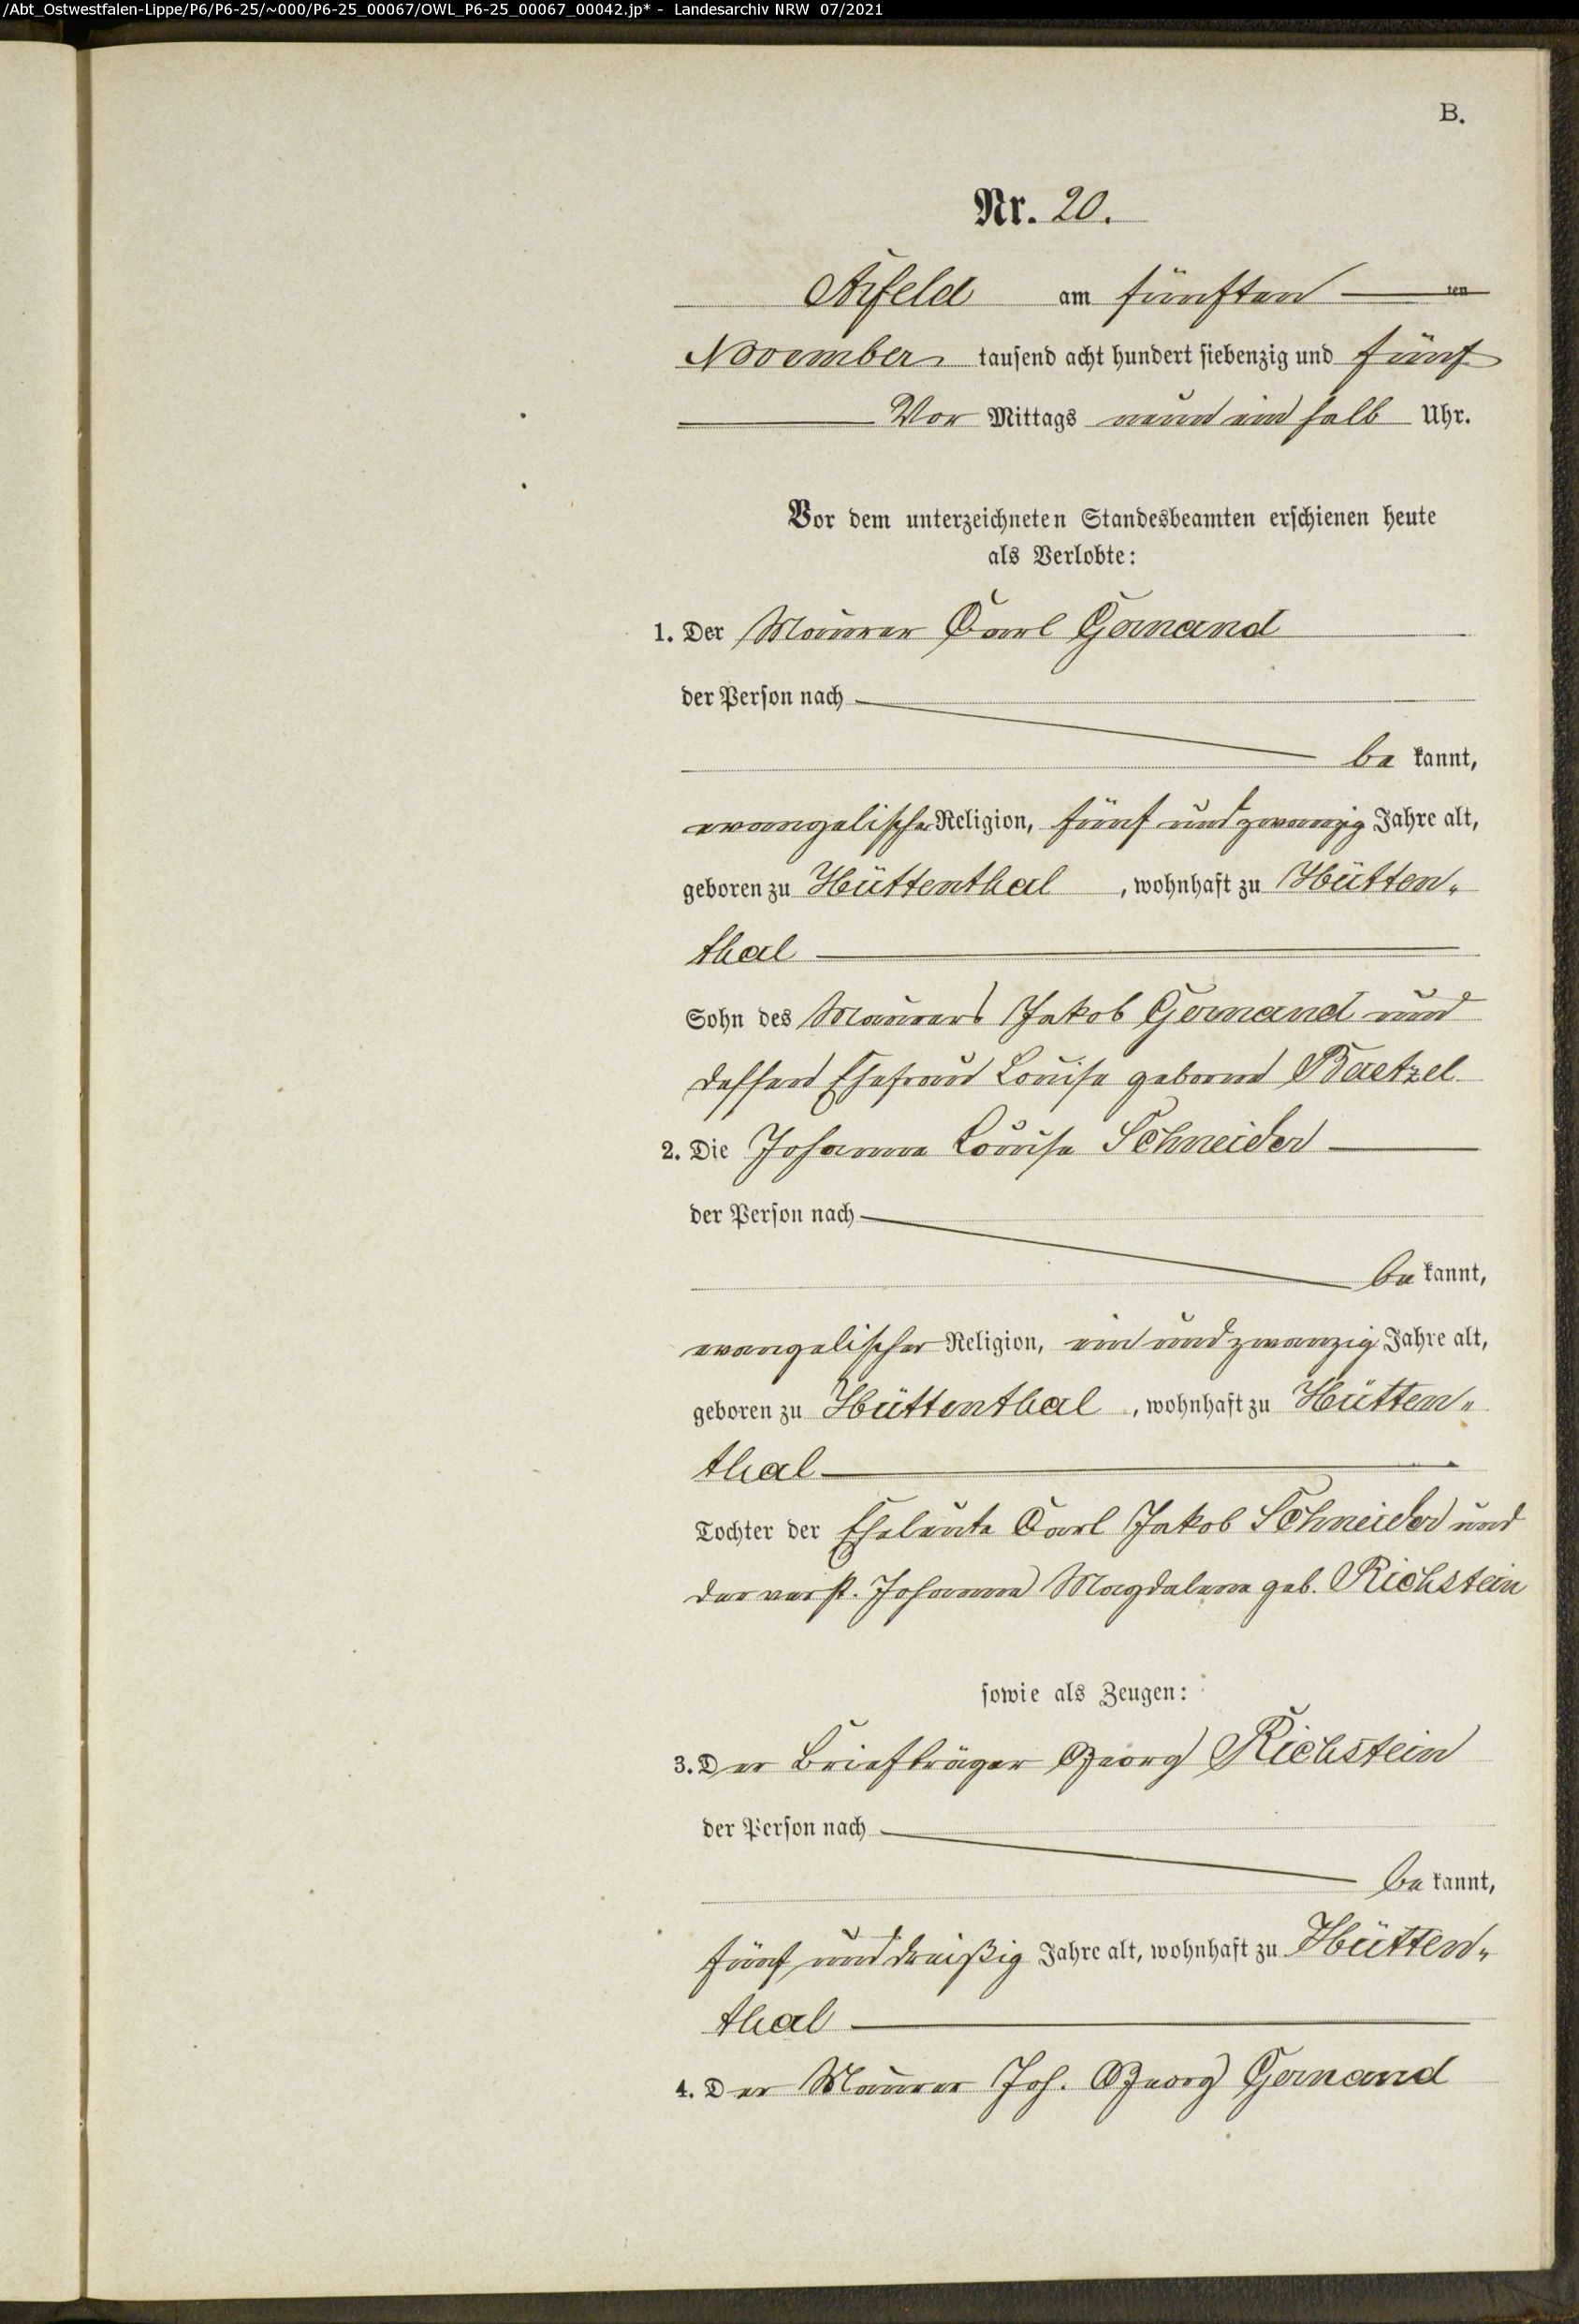 /Abt_Ostwestfalen-Lippe/P6/P6-25/~000/P6-25_00067/OWL_P6-25_00067_00042.jp* - Landesarchiv NRW 07/2021
B.
Nr. 20.
Arfeld am fünften ten
November tausend acht hundert siebenzig und fünf
Vor Mittags neun ein halb Uhr.
Vor dem unterzeichneten Standesbeamten erschienen heute
als Verlobte:
1. Der Maurer Carl Gernand
der Person nach
be kannt,
evangelischer Religion, fünf und zwanzig Jahre alt,
geboren zu Hüttenthal, wohnhaft zu Hütten„
thal
Sohn des Maurers Jakob Gernand und
dessen Ehefrau Louise geborne Baetzel
2. Die Johanne Louise Schneider
der Person nach
be kannt,
evangelischer Religion, ein und zwanzig Jahre alt,
geboren zu Hüttenthal, wohnhaft zu Hütten„
thal
Tochter der Eheleute Carl Jakob Schneider und
der verst. Johanne Magdalene geb. Richstein
sowie als Zeugen:
3. Der Briefträger Georg Richstein
der Person nach
be kannt,
fünf und dreißig Jahre alt, wohnhaft zu Hütten„
thal
4. Der Maurer Joh. Georg Gernand